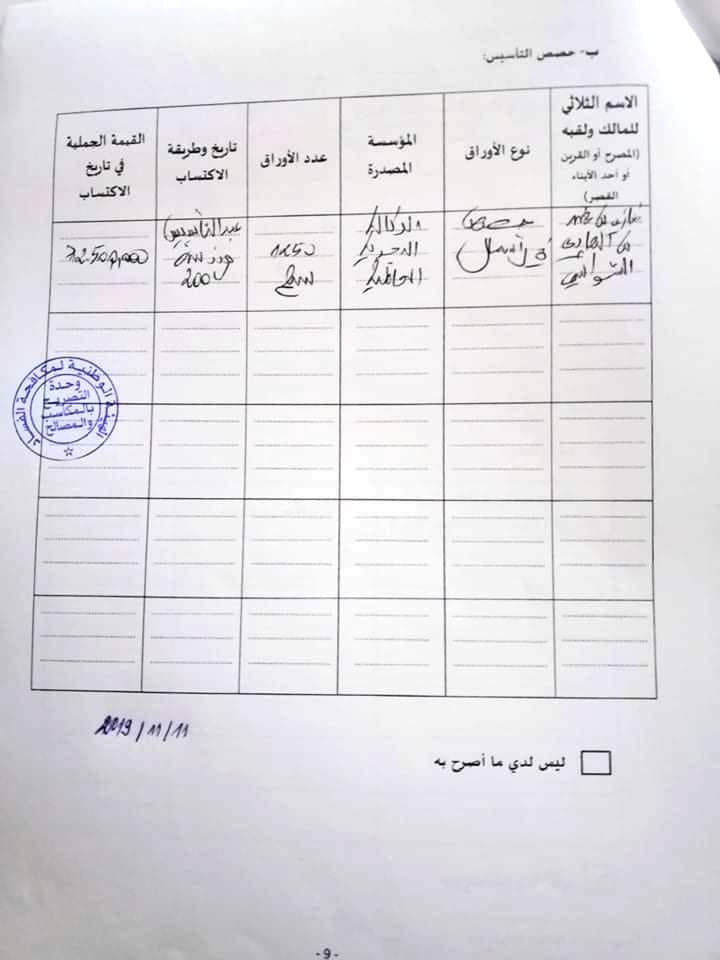 ب- حصص التأسيس:
الاسم الثلاثي
للمالك ولقبه
(المصرح أو القرين
أو أحد الأبناء
القصر)
نوع الأوراق
المؤسسة
المصدرة
عدد الأوراق
تاريخ وطريقة
الاكتساب
القيمة الجملية
في تاريخ
الاكتساب
غازي بن
بن الهادي
الشواشي
حصص
في رأسمال
الوكالة
1250
سهم
عند التأسيس
سنة
200
الهيئة الوطنية لمكافحة الفساد
وحدة
التصريح
بالمكاسب
والمصالح
2019/11/11
ليس لدي ما أصرح به
- 9 -